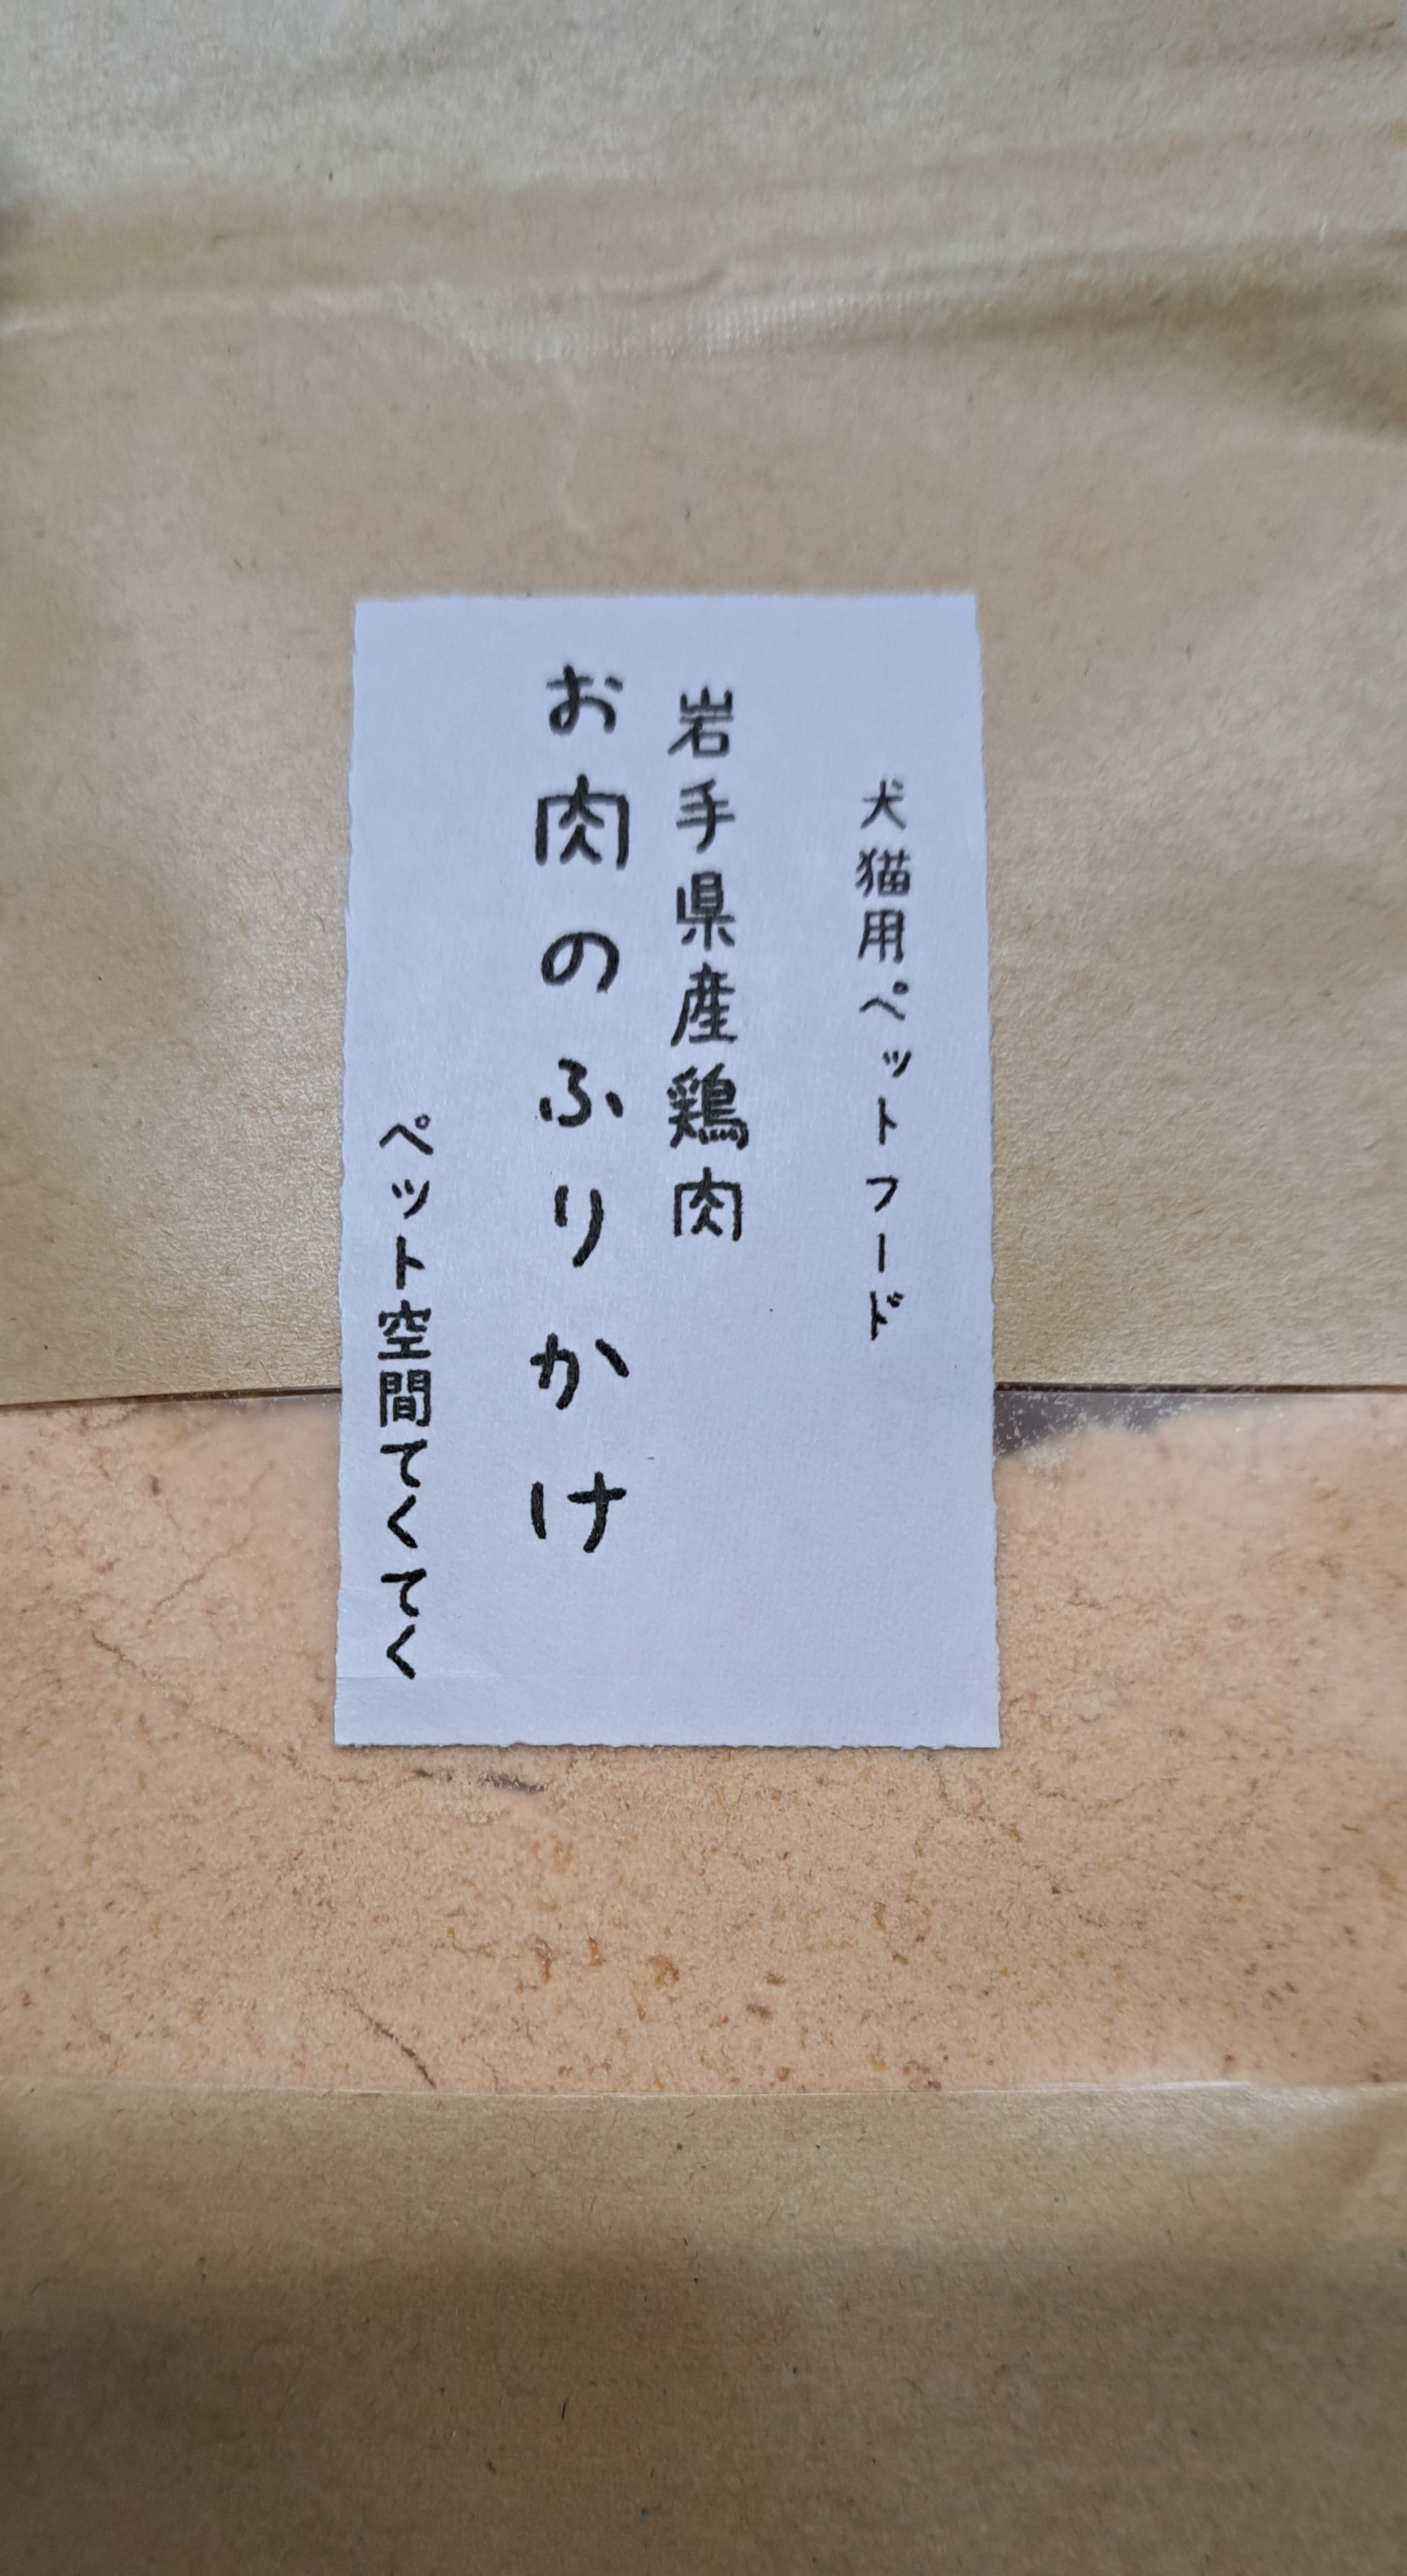 犬猫用ペットフード
岩手県産鶏肉
お肉のふりかけ
ペット空間てくてく